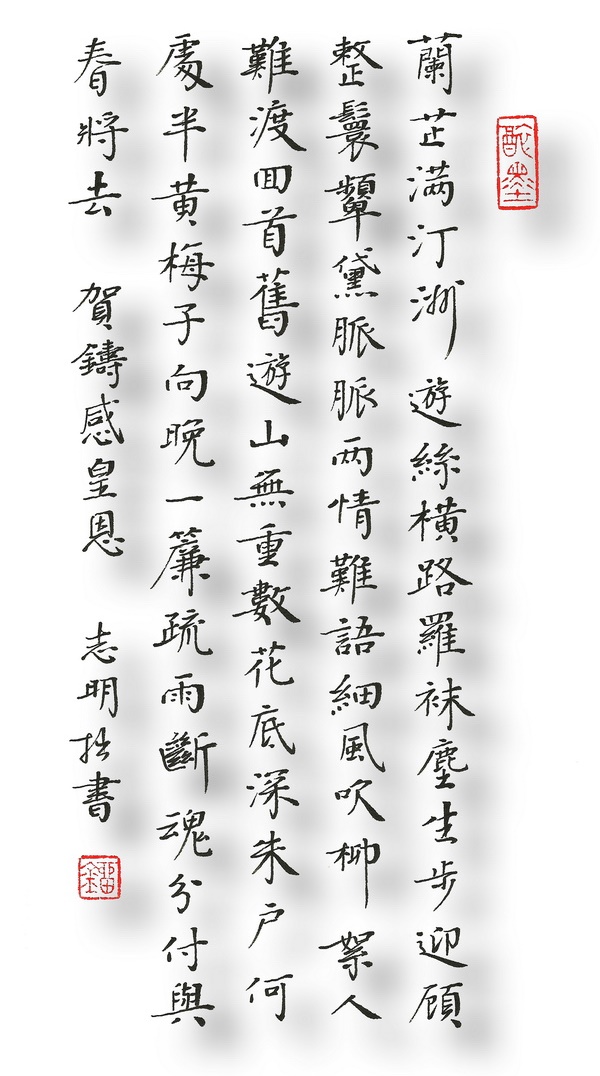 蘭芷滿汀洲 遊絲橫路羅袜塵生步迎顧
整鬟顰黛脈脈两情難語細風吹柳絮人
難渡回首舊遊山無重數花底深朱戶何
處半黃梅子向晚一簾疏雨斷魂分付與
春將去 賀鑄感皇恩 志明拙書